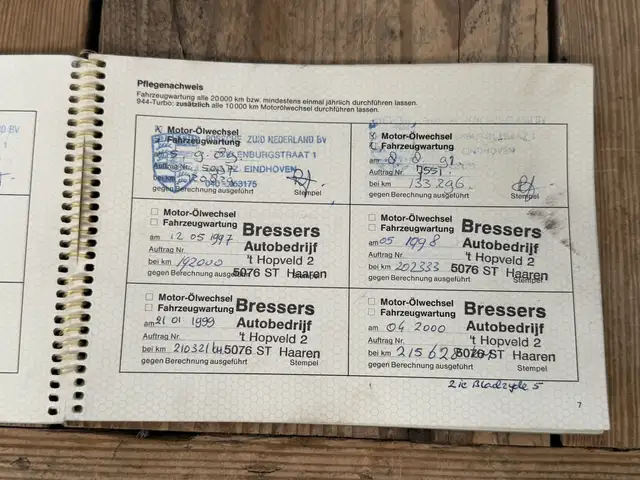 Pflegenachweis
Fahrzeugwartung alle 20 000 km bzw. mindestens einmal jährlich durchführen lassen.
944-Turbo: zusätzlich alle 10 000 km Motorölwechsel durchführen lassen.
Motor-Ölwechsel
Fahrzeugwartung
ZUID NEDERLAND BV
ENBURGSTRAAT 1
EINDHOVEN
Auftrag Nr.
bei km
gegen Berechnung ausgeführt
Stempel
Motor-Ölwechsel
Fahrzeugwartung
am 8. 8. 91.
Auftrag Nr. 7551.
bei km 133 296.
gegen Berechnung ausgeführt
Stempel
Motor-Ölwechsel
Fahrzeugwartung
am 12 05 1997
Auftrag Nr.
bei km 192000
gegen Berechnung ausgeführt
Stempel
Bressers
Autobedrijf
't Hopveld 2
5076 ST Haaren
Motor-Ölwechsel
Fahrzeugwartung
am 05 1998
Auftrag Nr.
bei km 202333
gegen Berechnung ausgeführt
Stempel
Bressers
Autobedrijf
't Hopveld 2
5076 ST Haaren
Motor-Ölwechsel
Fahrzeugwartung
am 21 01 1999
Auftrag Nr.
bei km 210321
gegen Berechnung ausgeführt
Stempel
Bressers
Autobedrijf
't Hopveld 2
5076 ST Haaren
Motor-Ölwechsel
Fahrzeugwartung
am 04 2000
Auftrag Nr.
bei km 215628
gegen Berechnung ausgeführt
Stempel
Bressers
Autobedrijf
't Hopveld 2
5076 ST Haaren
zie Bladzyde 5
7